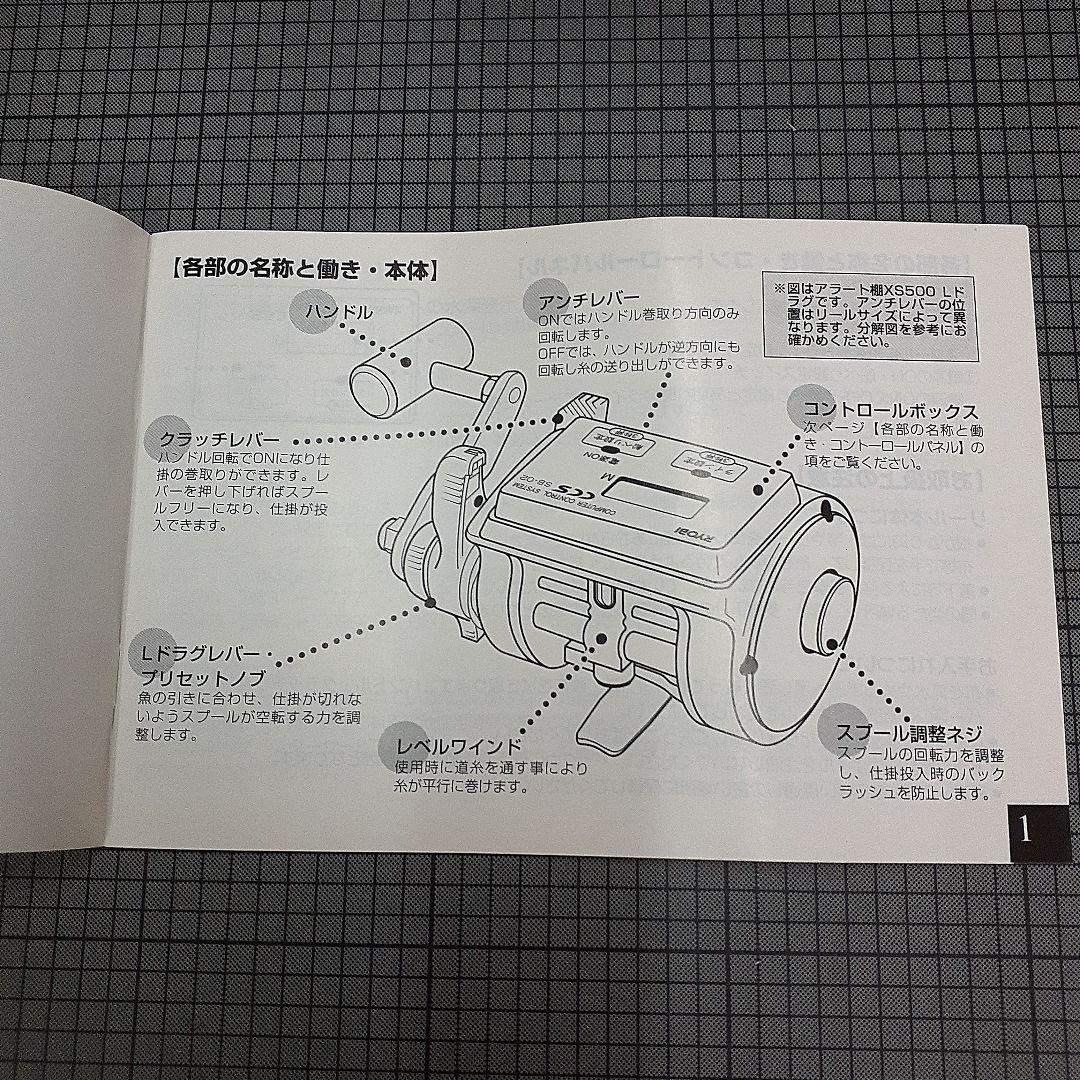 【各部の名称と働き・本体】
ハンドル
アンチレバー
ONではハンドル巻取り方向のみ
回転します。
OFFでは、ハンドルが逆方向にも
回転し糸の送り出しができます。
※図はアラート棚XS500 Lド
ラグです。アンチレバーの位
置はリールサイズによって異
なります。分解図を参考にお
確かめください。
コントロールボックス
次ページ【各部の名称と働
き・コントーロールパネル】の
項をご覧ください。
クラッチレバー
ハンドル回転でONになり仕
掛の巻取りができます。レ
バーを押し下げればスプー
ルフリーになり、仕掛が投
入できます。
船べり設定
電源ON
ライン設定
M
COMPUTER CONTROL SYSTEM
CCS SB-02
RYOBI
Lドラグレバー・
プリセットノブ
魚の引きに合わせ、仕掛が切れな
いようスプールが空転する力を調
整します。
レベルワインド
使用時に道糸を通す事により
糸が平行に巻けます。
スプール調整ネジ
スプールの回転力を調整
し、仕掛投入時のバック
ラッシュを防止します。
1